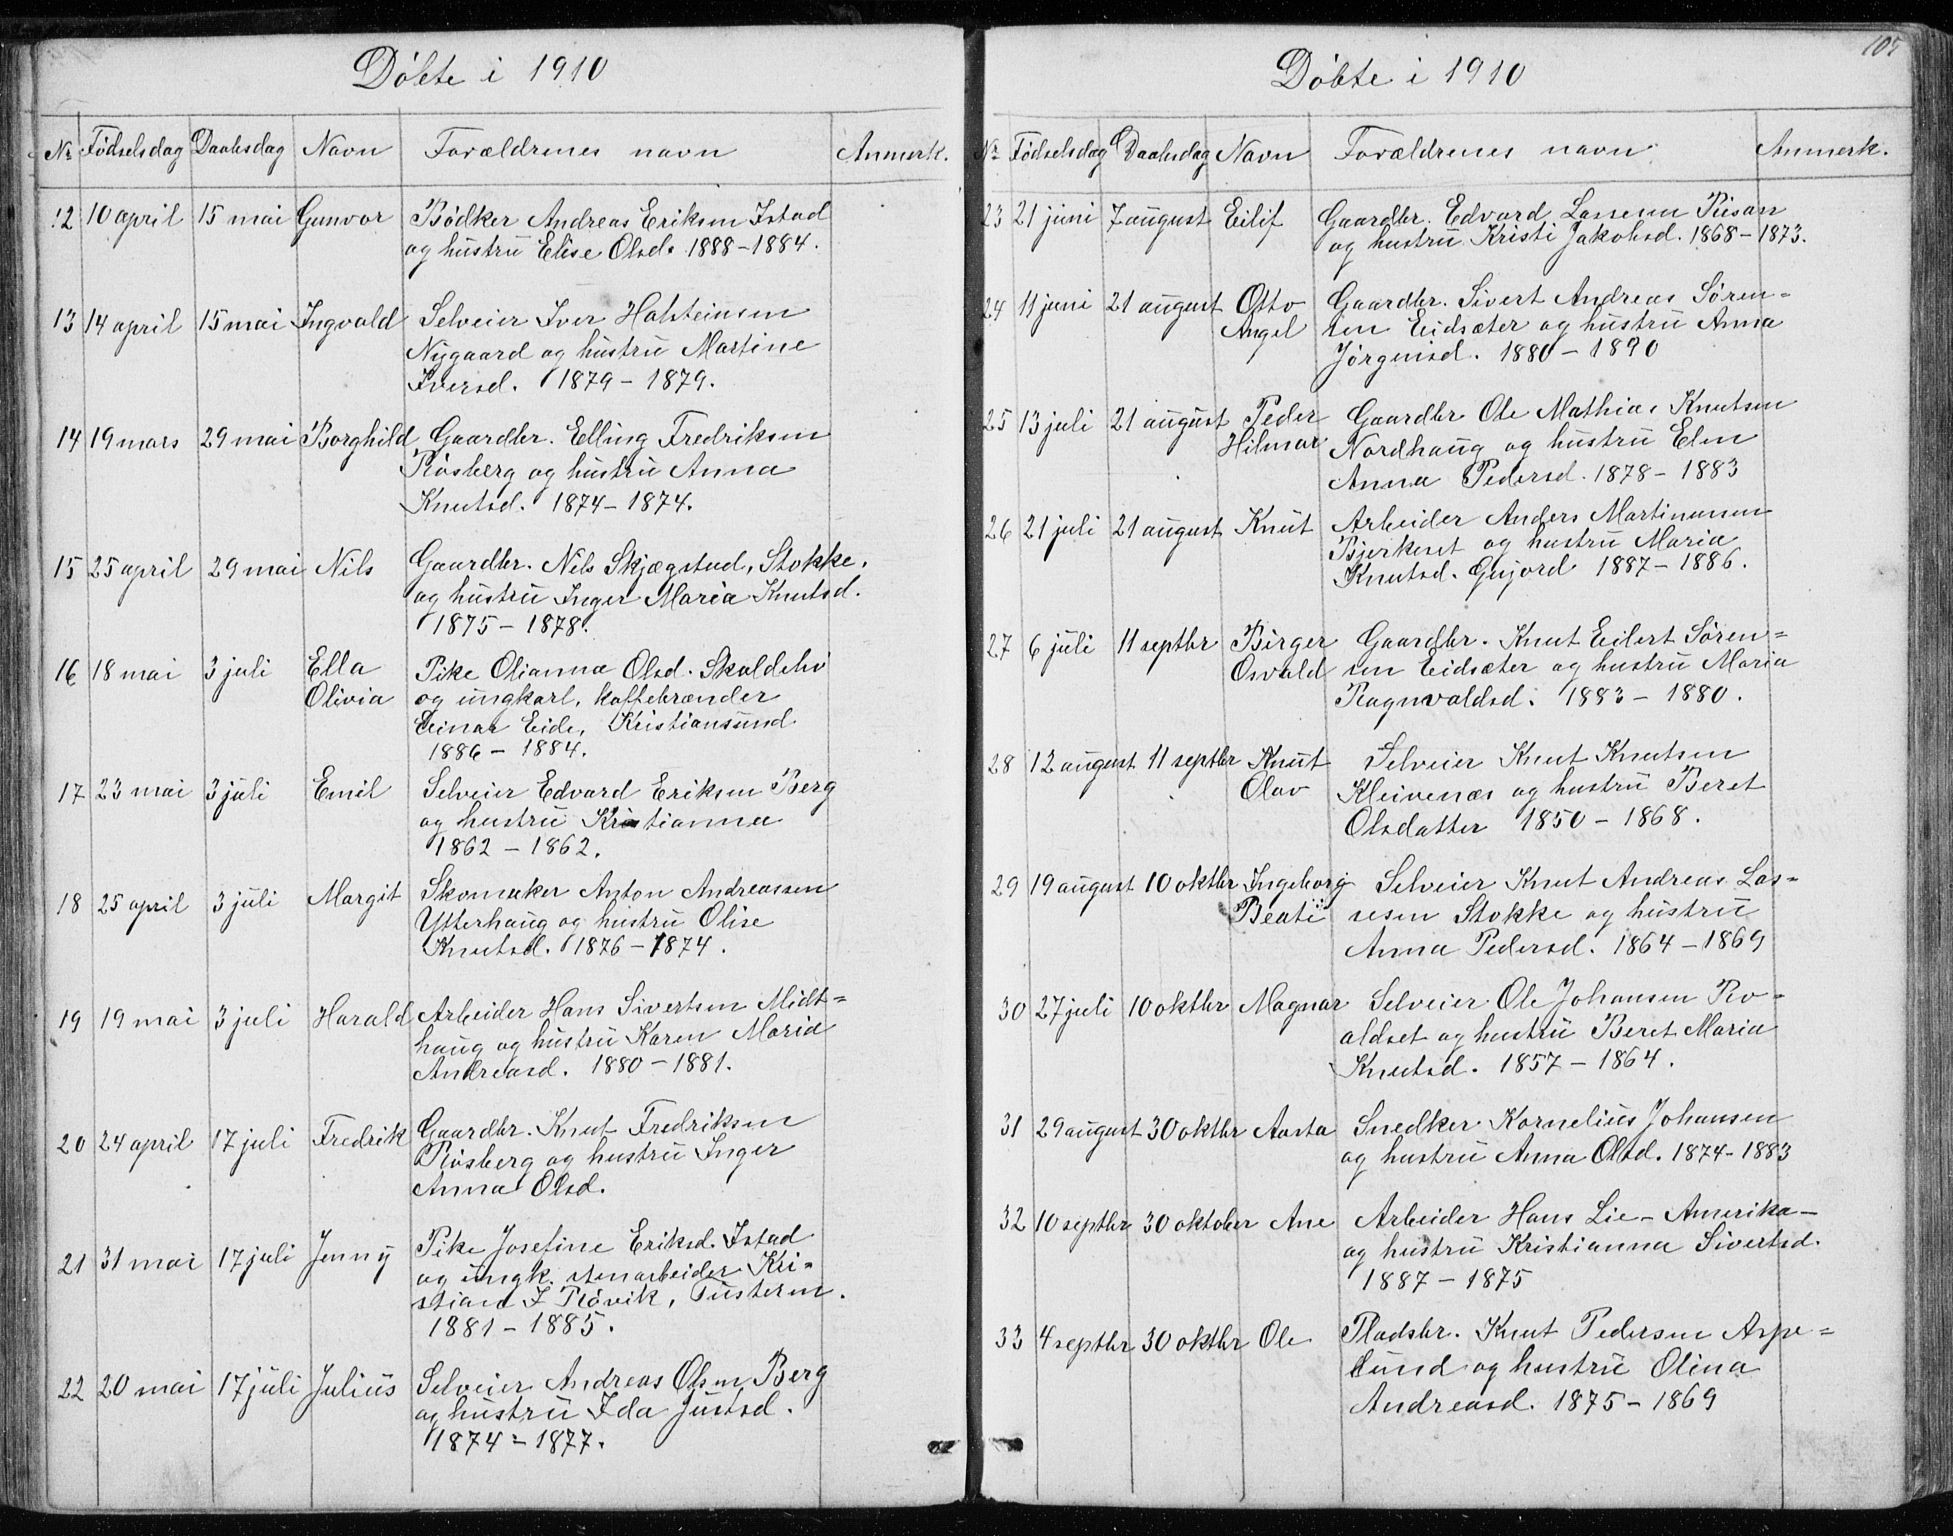 Döbte i 1910
Nr. Födselsdag Daabsdag Navn Forældrenes navn Anmerk.
12 10 april 15 mai Gunvor Bödker Andreas Eriksen Istad
og hustru Elise Olsd. 1888-1884.
13 14 april 15 mai Ingvald Selveier Iver Halsteinsen
Nygaard og hustru Martine
Iversd. 1879 - 1879.
14 19 mars 29 mai Borghild Gaardbr. Elling Fredriksen
Rösberg og hustru Anna
Knutsd. 1874 - 1874.
15 25 april 29 mai Nils Gaardbr. Nils Skjægstad, Stokke,
og hustru Inger Maria Knutsd.
1875 - 1878.
16 18 mai 3 juli Ella Pike Olianna Olsd. Skaldehö
Olivia og ungkarl, kaffebrænder
Einar Eide, Kristiansund
1886 - 1884.
17 23 mai 3 juli Emil Selveier Edvard Eriksen Berg
og hustru Kristianna
1862 - 1862.
18 25 april 3 juli Margit Skomaker Anton Andreassen
Ytterhaug og hustru Olise
Knutsd. 1876 - 1874.
19 19 mai 3 juli Harald Arbeider Hans Sivertsen Midt=
haug og hustru Karen Maria
Andreasd. 1880 - 1881.
20 24 april 17 juli Fredrik Gaardbr. Knut Fredriksen
Rösberg og hustru Inger
Anna Olsd.
21 31 mai 17 juli Jenny Pike Josefine Eriksd. Istad
og ungk. stenarbeider Kri=
stian I Rövik, Tusteren.
1881 - 1885.
22 20 mai 17 juli Julius Selveier Andreas Olsen Berg
og hustru Ida Justsd.
1874 - 1877.
107
Döbte i 1910
Nr. Födselsdag Daabsdag Navn Forældrenes navn Anmerk.
23 21 juni 7 august Eilif Gaardbr. Edvard Lassesen Risan
og hustru Kristi Jakobsd. 1868 - 1873.
24 11 juni 21 august Otto Gaardbr. Sivert Andreas Sören=
Angel sen Eidsæter og hustru Anna
Jörgensd. 1880 - 1890
25 13 juli 21 august Peder Gaardbr Ole Mathias Knutsen
Hilmar Nordhaug og hustru Elen
Anna Pedersd. 1878 - 1883
26 21 juli 21 august Knut Arbeider Anders Martinussen
Bjerkeset og hustru Maria
Knutsd. Gujord 1887 - 1886.
27 6 juli 11 septbr Birger Gaardbr. Knut Eilert Sören=
Osvald sen Eidsæter og hustru Maria
Ragnvaldsd. 1883 - 1880.
28 12 august 11 septbr Knut Selveier Knut Knutsen
Olav Kleivenæs og hustru Beret
Olsdatter 1850 - 1868.
29 19 august 10 oktbr Ingeborg Selveier Knut Andreas Las=
Beate sesen Stokke og hustru
Anna Pedersd. 1864 - 1869
30 27 juli 10 oktbr Magnar Selveier Ole Johansen Ro=
aldset og hustru Beret Maria
Knutsd. 1857 - 1864.
31 29 august 30 oktbr Aasta Snedker Kornelius Johansen
og hustru Anna Olsd. 1874 - 1883
32 10 septbr 30 oktober Ane Arbeider Hans Lie - Amerika -
og hustru Kristianna Sivertsd.
1887 - 1875
33 4 septbr 30 oktbr Ole Pladsbr. Knut Pedersen Aspe=
lund og hustru Olina
Andreasd. 1875 - 1869